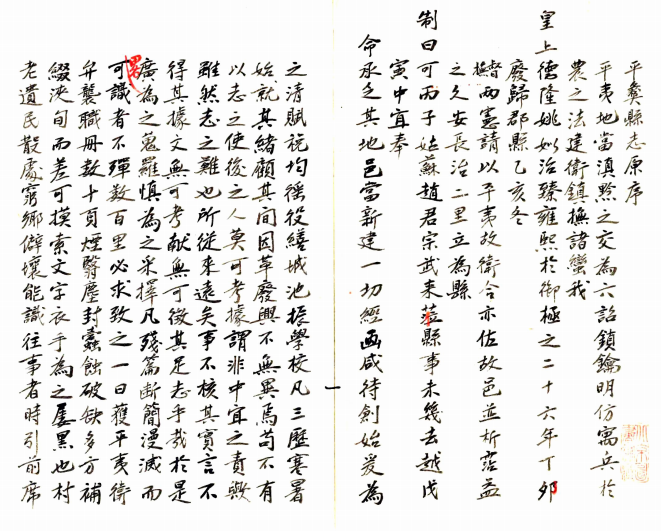 平彝縣志原序
平夷地當滇黔之交為六詔鎖鑰明仿寓兵於
農之法建衛鎮撫諸蠻我
皇上德隆姚姒治臻雍熙於御極之二十六年丁卯
廢歸郡縣乙亥冬
督兩憲請以平夷故衛合亦佐故邑並析霑益
之久安長治二里立為縣
制曰可丙子姑蘇趙君宗武来蒞縣事未幾去越戊
寅中宜奉
命承乏其地邑當新建一切經畫咸待創始爰為
之清賦税均徭役繕城池振學校凡三歷寒暑
始就其緒顧其間因革廢興不無異焉苟不有
以志之使後之人莫可考據謂非中宜之責歟
雖然志之難也所從来遠矣事不核其實言不
得其據文無可考獻無可徵其足志乎哉於是
廣為之蒐羅慎為之采擇凡殘篇斷簡漫滅而
可識者不殫數百里必求致之一日獲平夷衛
弁襲職冊數十頁煙翳塵封蠹蝕破缺多方補
綴浹旬而差可摸索文字衣手為之屢黑也村
老遺民散處窮鄉僻壤能識往事者時引前席